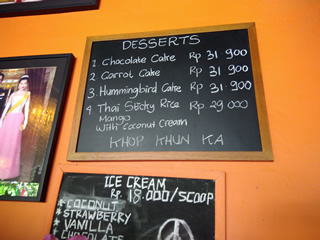 DESSERTS
1. Chocolate Cake Rp 31 900
2 Carrot Cake Rp 31 900
3 Hummingbird Cake Rp 31 900
4 Thai Sticky Rice Rp 29 000
Mango
With Coconut Cream
KHOP KHUN KA
ICE CREAM
Rp. 18.000/SCOOP
* COCONUT
* STRAWBERRY
* VANILLA
* CHOCOLATE